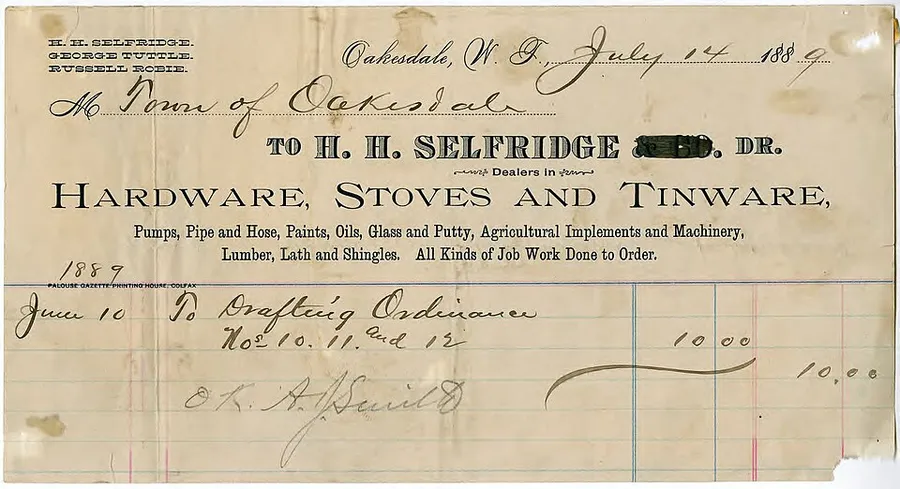 H. H. SELFRIDGE.
GEORGE TUTTLE.
RUSSELL ROBIE.
Oakesdale, W. T., July 14 1889
M Town of Oakesdale
TO H. H. SELFRIDGE & CO. DR.
Dealers in
HARDWARE, STOVES AND TINWARE,
Pumps, Pipe and Hose, Paints, Oils, Glass and Putty, Agricultural Implements and Machinery,
Lumber, Lath and Shingles. All Kinds of Job Work Done to Order.
1889
PALOUSE GAZETTE PRINTING HOUSE, COLFAX
June 10 To Drafting Ordinance
Nos 10. 11. and 12 10 00
10.00
OK. A. J. Smith